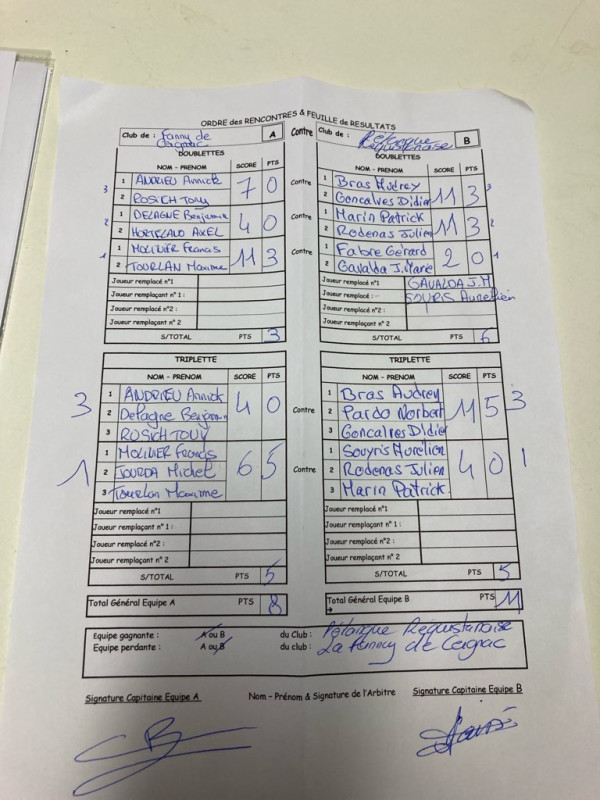 ORDRE des RENCONTRES & FEUILLE de RESULTATS
Club de : Fanny de Ceignac A Contre Club de : Pétanque Requistanaise B
DOUBLETTES DOUBLETTES
NOM - PRENOM SCORE PTS NOM - PRENOM SCORE PTS
3 1 ANDRIEU Annick 7 0 Contre 1 Bras Audrey 11 3 3
2 ROSICH TONY 2 Goncalves Didier
2 1 DELAGNE Benjamin 4 0 Contre 1 Marin Patrick 11 3 2
2 AXEL 2 Rodenas Julien
1 1 MOLINIER Francis 11 3 Contre 1 Fabre Gérard 2 0 1
2 TOURLAN Maxime 2 Gavalda J.Marie
Joueur remplacé n°1 Joueur remplacé n°1 GAVALDA J.M
Joueur remplaçant n°1 : Joueur remplacé : SOURIS Aurélien
Joueur remplacé n°2 Joueur remplacé n°2
Joueur remplaçant n° 2 Joueur remplaçant n° 2
S/TOTAL PTS 3 S/TOTAL PTS 6
TRIPLETTE TRIPLETTE
NOM - PRENOM SCORE PTS NOM - PRENOM SCORE PTS
1 ANDRIEU Annick 1 Bras Audrey
3 2 Delagne Benjamin 4 0 Contre 2 Pardo Norbert 11 5 3
3 ROSICH TONY 3 Goncalves Didier
1 MOLINIER Francis 1 Souyris Aurélien
1 2 JOURDA Michel 6 5 Contre 2 Rodenas Julien 4 0 1
3 Tourlan Maxime 3 Marin Patrick
Joueur remplacé n°1 Joueur remplacé n°1
Joueur remplaçant n°1 : Joueur remplaçant n°1 :
Joueur remplacé n°2 : Joueur remplacé n°2 :
Joueur remplaçant n° 2 Joueur remplaçant n° 2
S/TOTAL PTS 5 S/TOTAL PTS 5
Total Général Equipe A PTS 8 Total Général Equipe B PTS 11
Equipe gagnante : A ou B du Club : Pétanque Requistanaise
Equipe perdante : A ou B du club : La Fanny de Ceignac
Signature Capitaine Equipe A Nom - Prénom & Signature de l'Arbitre Signature Capitaine Equipe B